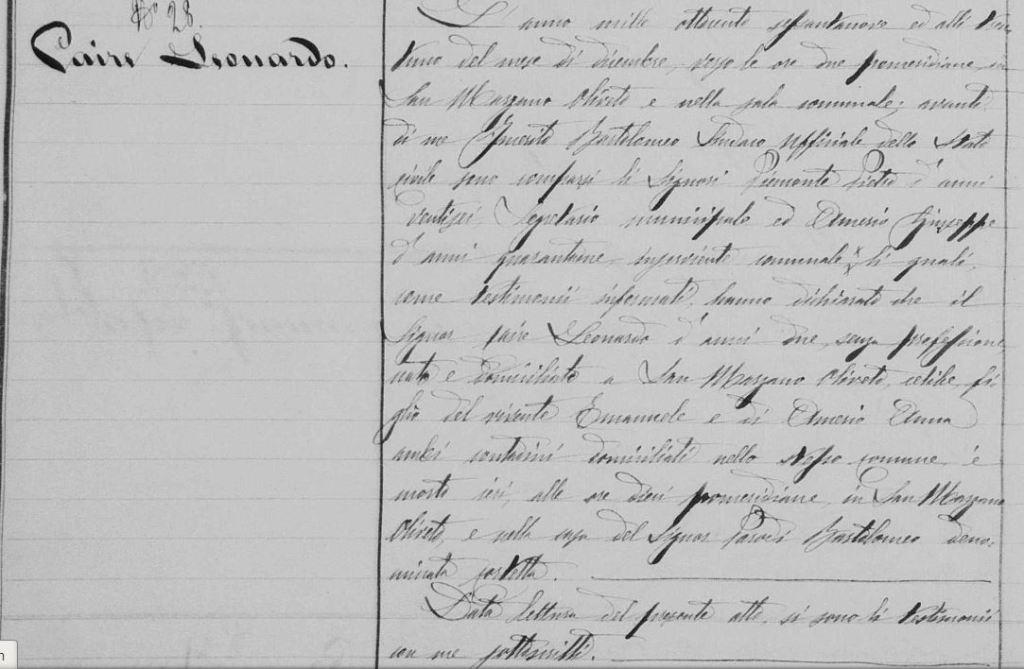 No 28.
Paire Leonardo.
L'anno mille ottocento settantanove ed alli tren-
tuno del mese di dicembre, verso le ore due pomeridiane, in
San Marzano Oliveto e nella sala comunale; avanti
di me Bartolomeo Sindaco Uffiziale dello Stato
civile sono comparsi li Signori Piemonte Pietro d'anni
ventisei, Segretario municipale ed Amerio Giuseppe
d'anni quarantanne inserviente comunale, li quali,
come testimonii informati, hanno dichiarato che il
Signor Paire Leonardo d'anni due, senza professione
nato e domiciliato a San Marzano Oliveto, celibe, fi-
glio del vivente Emanuele e di Amerio Anna
ambi contadini domiciliati nello stesso comune, è
morto ieri, alle ore dieci pomeridiane, in San Marzano
Oliveto, e nella casa del Signor Parodi Bartolomeo deno-
minata
Data lettura del presente atto, si sono li testimonii
con me sottoscritti.